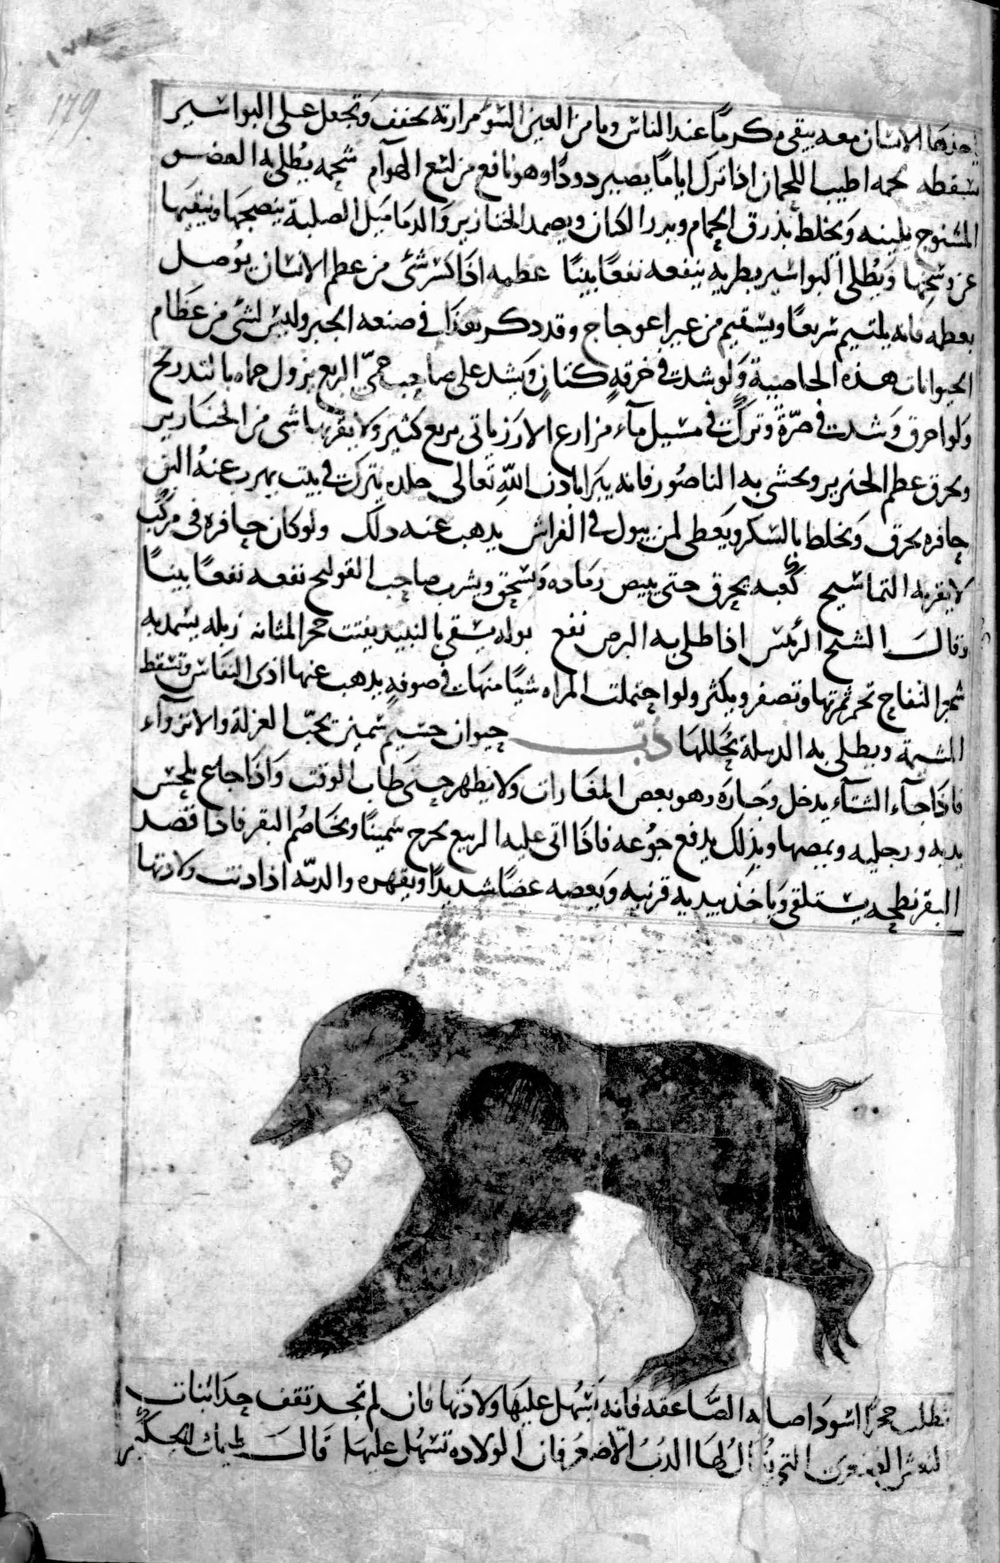 179
ياخذها الانسان معه يبقى مكرما عند الناس ويامن العين السوء مرارته يجفف وتجعل على البواسير
يسقطه لحمه اطيب اللحمان اذا ترك اياما يصير دودا وهو نافع من لسع الهوام شحمه يطلى به العضو
المشنوج يلينه ويخلط بذرق الحمام وبذر الكتان ويضمد الخنازير والدماميل الصلبة ينضجها وينقيها
عن وسخها ويطلى البواسير بطريه ينفعه نفعا بينا عظمه اذا كسر شئ من عظم الانسان يوصل
بعظمه فانه يلتئم سريعا ويستقيم من غير اعوجاج وقد ذكر هذا في صنعه الجبر وليس لشئ من عظام
الحيوانات هذه الخاصية ولو شدت في خرقة كتان ويشد على صاحب حمى الربع يزول حماه بالتدريج
ولو احرق وشدت في صرة وتركت في مسيل ماء مزارع الارز ياتي بريع كثير ولا يقربها شئ من الخنازير
ويحرق عظم الخنزير ويحشى به الناصور فانه يبرا باذن الله تعالى جلده يترك في بيت يهرب عنه البق
حافره يحرق ويخلط بالسكر ويعطى لمن يبول في الفراش يذهب عنه ذلك ولو كان حافره في مركب
لا يقربه التماسيح كعبه يحرق حتى يبيض رماده ويسحق ويشرب صاحب القولنج نفعه نفعا بينا
وقال الشيخ الرئيس اذا طلى به البرص نفع بوله يسقى بالنبيذ يفتت حجر المثانه زبله يسمد به
شجر التفاح تحمر ثمرتها وتصفر ويكثر ولو احتملت المراه شيئا منها في صوفه يذهب عنها اذى النفاس وتسقط
المشيمة ويطلى به الدبيلة يحللها دب حيوان جسيم سمين يحب العزلة والانزواء
فاذا جاء الشتاء يدخل وجاره وهو بعض المغارات ولا يظهر حتى طاب الوقت واذا جاع يلحس
يديه ورجليه ويمصها وبذلك يدفع جوعه فاذا اتى عليه الربيع يخرج سمينا ويخاصم البقر فاذا قصد
البقر نطحه يستلقى وياخذ بيديه قرنيه ويعضه عضا شديدا ويقهره والدبه اذا دنت ولادتها
تطلب حجرا اسود اصابه الصاعقه فانه يسهل عليها ولادتها فان لم تجد تقف حذا بنات
النعش الصغرى التي يقال لها الدب الاصغر فان الولاده تسهل عليها قال